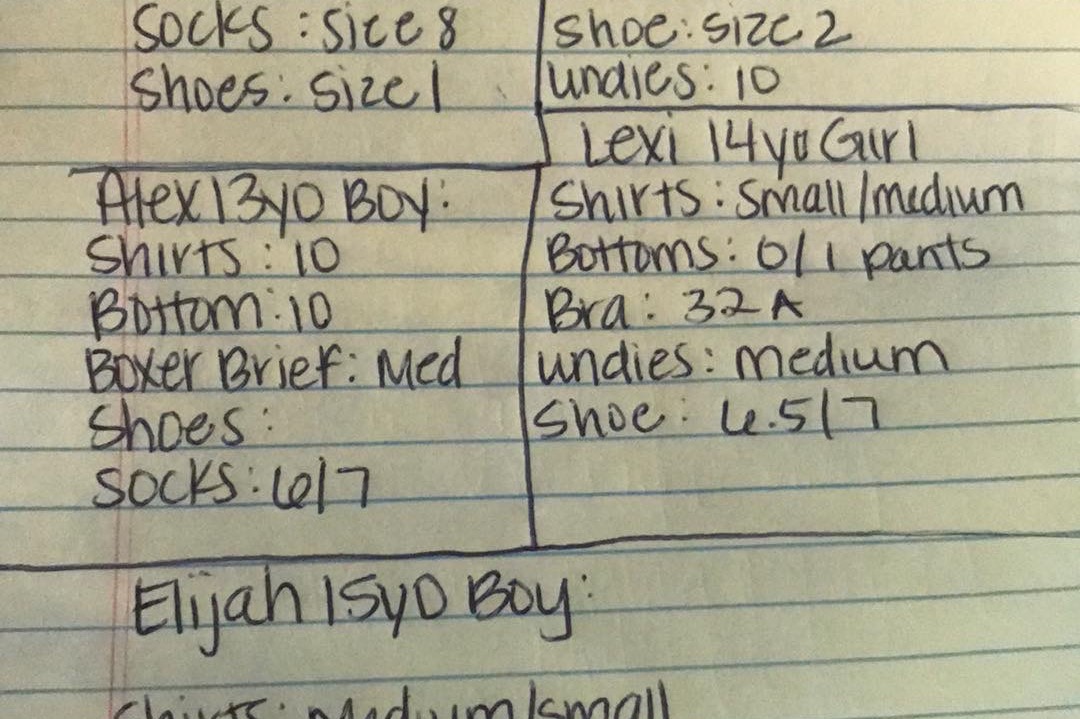 Socks : size 8
Shoes: Size 1
Shoe: Size 2
undies: 10
Alex 13yo Boy:
Shirts : 10
Bottom: 10
Boxer Brief: Med
Shoes:
Socks: 6/7
Lexi 14yo Girl
Shirts : Small/medium
Bottoms: 0/1 pants
Bra: 32 A
undies: medium
Shoe: 6.5/7
Elijah 15yo Boy:
Shirts: Medium/small